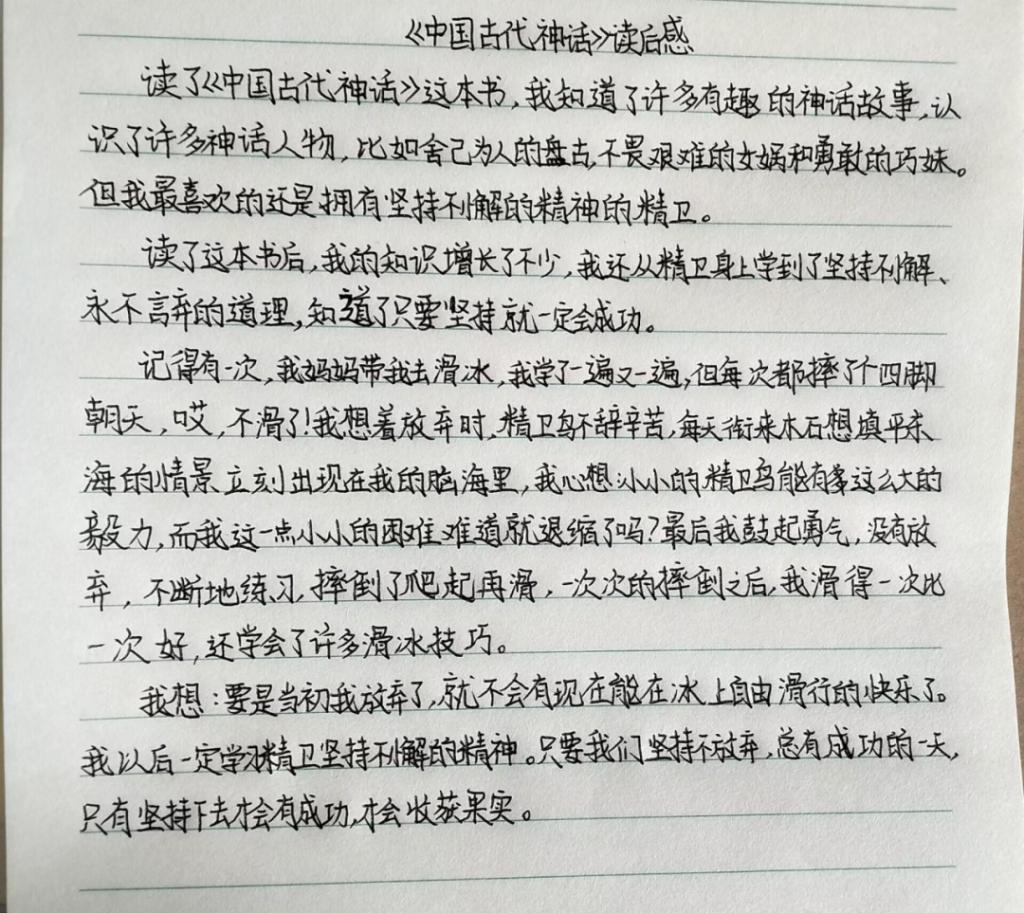 《中国古代神话》读后感
读了《中国古代神话》这本书,我知道了许多有趣的神话故事,认
识了许多神话人物,比如舍己为人的盘古,不畏艰难的女娲和勇敢的巧妹。
但我最喜欢的还是拥有坚持不懈的精神的精卫。
读了这本书后,我的知识增长了不少,我还从精卫身上学到了坚持不懈、
永不言弃的道理,知道了只要坚持就一定会成功。
记得有一次,我妈妈带我去滑冰,我学了一遍又一遍,但每次都摔了个四脚
朝天,哎,不滑了!我想着放弃时,精卫鸟不辞辛苦,每天衔来木石想填平东
海的情景立刻出现在我的脑海里,我心想:小小的精卫鸟能有多这么大的
毅力,而我这一点小小的困难难道就退缩了吗?最后我鼓起勇气,没有放
弃,不断地练习,摔倒了爬起再滑,一次次的摔倒之后,我滑得一次比
一次好,还学会了许多滑冰技巧。
我想:要是当初我放弃了,就不会有现在能在冰上自由滑行的快乐了。
我以后一定学习精卫坚持不懈的精神。只要我们坚持不放弃,总有成功的一天,
只有坚持下去才会有成功,才会收获果实。